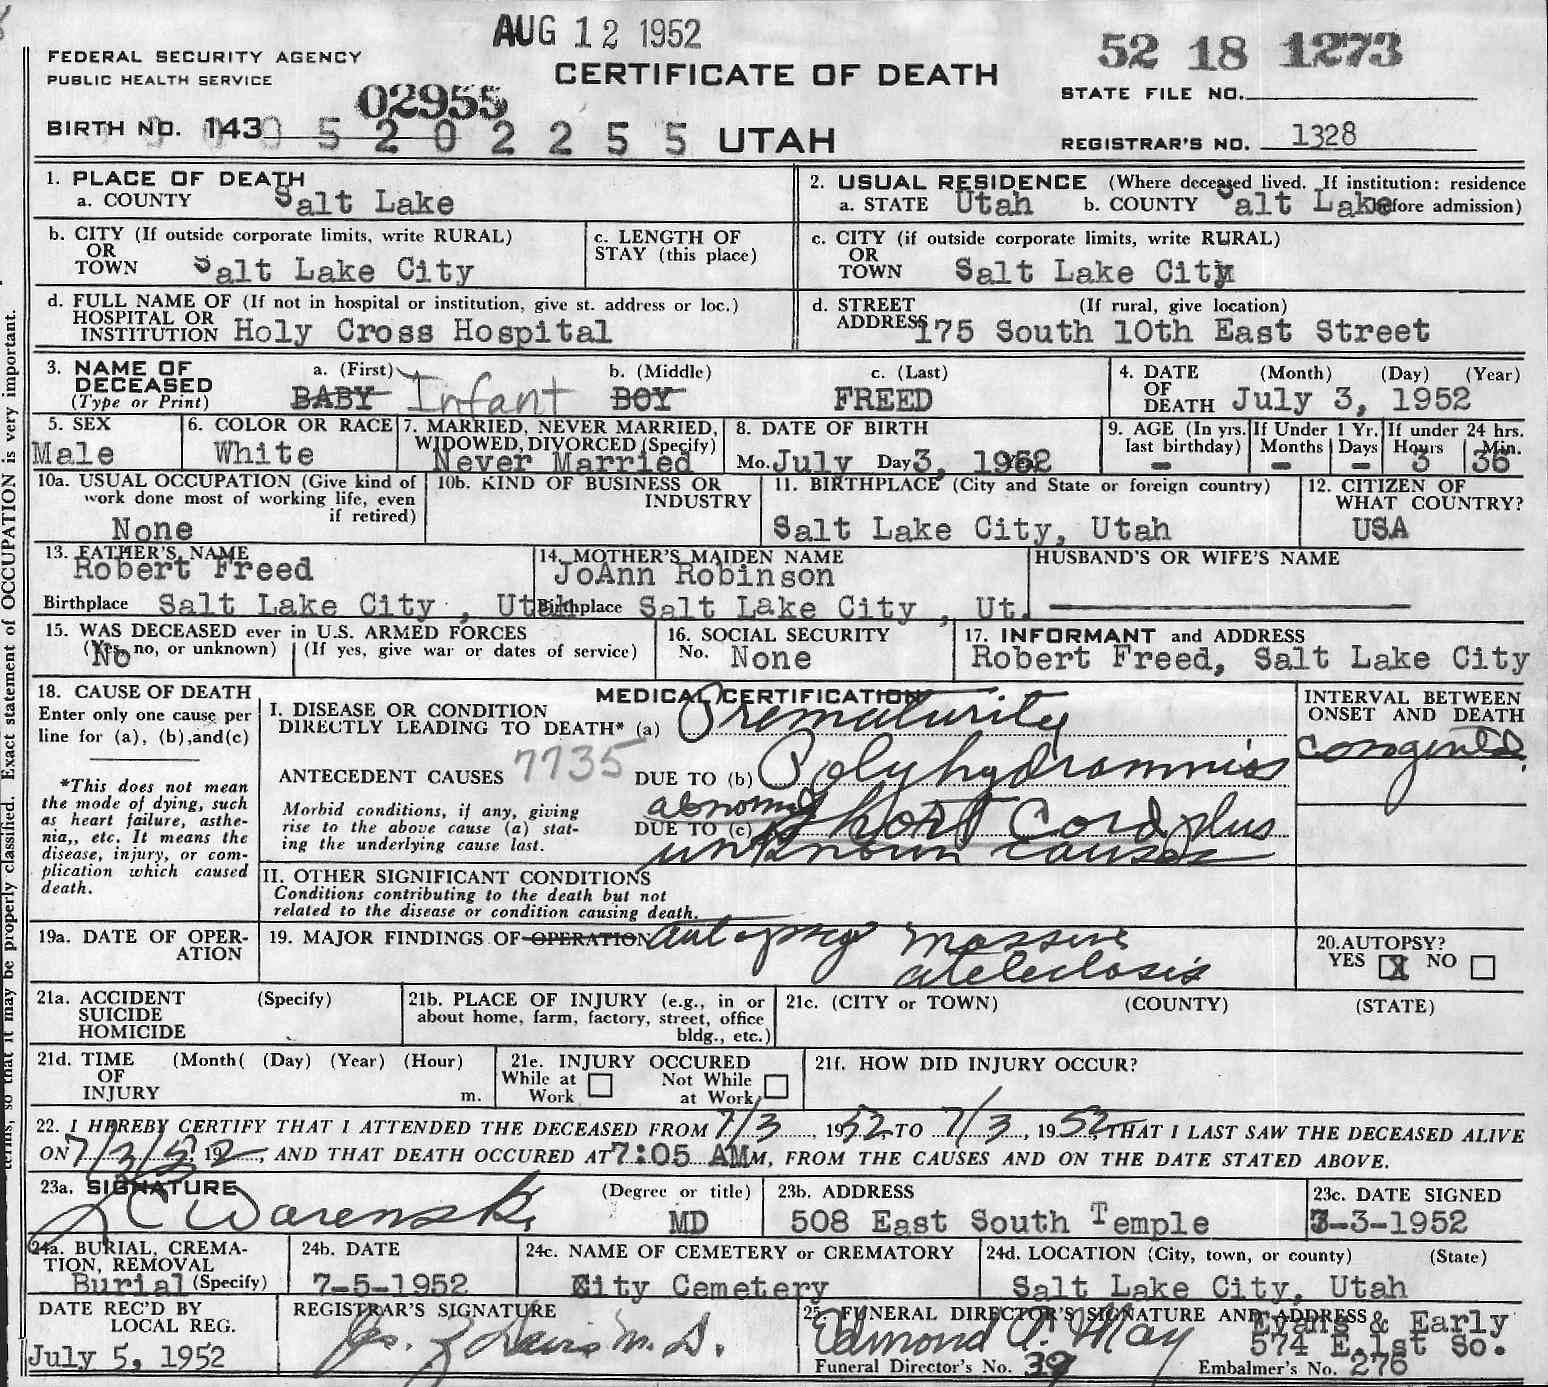 AUG 12 1952
52 18 1273
FEDERAL SECURITY AGENCY
PUBLIC HEALTH SERVICE
CERTIFICATE OF DEATH
STATE FILE NO.
02955
BIRTH NO. 143 5 2 0 2 2 5 5 UTAH
REGISTRAR'S NO. 1328
1. PLACE OF DEATH
a. COUNTY Salt Lake
2. USUAL RESIDENCE (Where deceased lived. If institution: residence before admission)
a. STATE Utah b. COUNTY Salt Lake
b. CITY (If outside corporate limits, write RURAL)
OR
TOWN Salt Lake City
c. LENGTH OF
STAY (this place)
c. CITY (if outside corporate limits, write RURAL)
OR
TOWN Salt Lake City
d. FULL NAME OF (If not in hospital or institution, give st. address or loc.)
HOSPITAL OR
INSTITUTION Holy Cross Hospital
d. STREET (If rural, give location)
ADDRESS 175 South 10th East Street
3. NAME OF
DECEASED
(Type or Print)
a. (First) b. (Middle) c. (Last)
BABY Infant BOY FREED
4. DATE (Month) (Day) (Year)
OF
DEATH July 3, 1952
5. SEX
Male
6. COLOR OR RACE
White
7. MARRIED, NEVER MARRIED,
WIDOWED, DIVORCED (Specify)
Never Married
8. DATE OF BIRTH
Mo. July Day 3, 1952
9. AGE (In yrs. last birthday) -
If Under 1 Yr. Months - Days -
If under 24 hrs. Hours 3 Min. 36
10a. USUAL OCCUPATION (Give kind of
work done most of working life, even
if retired)
None
10b. KIND OF BUSINESS OR
INDUSTRY
11. BIRTHPLACE (City and State or foreign country)
Salt Lake City, Utah
12. CITIZEN OF
WHAT COUNTRY?
USA
13. FATHER'S NAME
Robert Freed
Birthplace Salt Lake City , Utah
14. MOTHER'S MAIDEN NAME
JoAnn Robinson
Birthplace Salt Lake City , Ut.
HUSBAND'S OR WIFE'S NAME
15. WAS DECEASED ever in U.S. ARMED FORCES
(Yes, no, or unknown) (If yes, give war or dates of service)
No
16. SOCIAL SECURITY
No. None
17. INFORMANT and ADDRESS
Robert Freed, Salt Lake City
18. CAUSE OF DEATH
Enter only one cause per
line for (a), (b),and(c)
*This does not mean
the mode of dying, such
as heart failure, asthe-
nia,, etc. It means the
disease, injury, or com-
plication which caused
death.
MEDICAL CERTIFICATION
I. DISEASE OR CONDITION
DIRECTLY LEADING TO DEATH* (a) Prematurity
ANTECEDENT CAUSES 7735 DUE TO (b) Polyhydramnios
Morbid conditions, if any, giving
rise to the above cause (a) stat-
ing the underlying cause last.
DUE TO (c) abnormal short cord plus
unknown causes
INTERVAL BETWEEN
ONSET AND DEATH
congenital
II. OTHER SIGNIFICANT CONDITIONS
Conditions contributing to the death but not
related to the disease or condition causing death.
19a. DATE OF OPER-
ATION
19. MAJOR FINDINGS OF OPERATION autopsy massive
atelectosis
20.AUTOPSY?
YES X NO
21a. ACCIDENT (Specify)
SUICIDE
HOMICIDE
21b. PLACE OF INJURY (e.g., in or
about home, farm, factory, street, office
bldg., etc.)
21c. (CITY or TOWN) (COUNTY) (STATE)
21d. TIME (Month( (Day) (Year) (Hour)
OF
INJURY m.
21e. INJURY OCCURED
While at Work Not While at Work
21f. HOW DID INJURY OCCUR?
22. I HEREBY CERTIFY THAT I ATTENDED THE DECEASED FROM 7/3, 1952, TO 7/3, 1952, THAT I LAST SAW THE DECEASED ALIVE
ON 7/3/52 19, AND THAT DEATH OCCURED AT 7:05 AM M, FROM THE CAUSES AND ON THE DATE STATED ABOVE.
23a. SIGNATURE (Degree or title)
L C Warenski MD
23b. ADDRESS
508 East South Temple
23c. DATE SIGNED
7-3-1952
24a. BURIAL, CREMA-
TION, REMOVAL
Burial (Specify)
24b. DATE
7-5-1952
24c. NAME OF CEMETERY or CREMATORY
City Cemetery
24d. LOCATION (City, town, or county) (State)
Salt Lake City, Utah
DATE REC'D BY
LOCAL REG.
July 5, 1952
REGISTRAR'S SIGNATURE
Davis M.D.
25. FUNERAL DIRECTOR'S SIGNATURE AND ADDRESS
Edmond P. May Evans & Early
574 E.1st So.
Funeral Director's No. 39 Embalmer's No. 276
terms, so that it may be properly classified. Exact statement of OCCUPATION is very important.